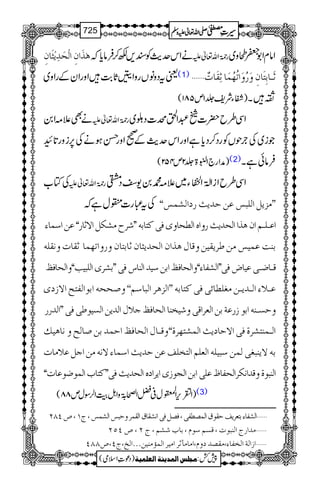 سیرتِ مصطفیٰ صلی اللہ تعالیٰ علیہ وسلم 725
امام ابو جعفر طحاوی رحمۃ اللہ تعالیٰ علیہ نے اس حدیث کی دو سندیں لکھ کر فرمایا کہ ہٰذَانِ الْحَدِیْثَانِ
ثَابِتَانِ وَ رُوَاتُهُمَا ثِقَاتٌ.......... (1) یعنی یہ دونوں روایتیں ثابت ہیں اور ان کے راوی
ثقہ ہیں۔ (شفاء شریف جلد ا ص ۱۸۵)
اسی طرح حضرت شیخ عبدالحق محدث دہلوی رحمۃ اللہ تعالیٰ علیہ نے بھی علامہ ابن
جوزی کے رد کو رد کر دیا ہے اور اس حدیث کے صحیح اور حسن ہونے کی پر زور تائید
فرمائی ہے۔ (2) (مدارج النبوۃ جلد ۲ ص ۲۵۴)
اسی طرح ازالۃ الخفاء میں علامہ محمد بن یوسف دمشقی رحمۃ اللہ تعالیٰ علیہ کی کتاب
"مزیل اللبس عن حدیث ردالشمس" کی یہ عبارت منقول ہے کہ
اعلم ان هذا الحدیث رواه الطحاوی فی کتابه "شرح مشکل الاثار" عن اسماء
بنت عمیس من طریقین وقال هذان الحدیثان ثابتان ورواتهما ثقات ونقله
قاضی عیاض فی "الشفاء" والحافظ ابن سید الناس فی "بشری اللبیب" والحافظ
علاء الدین مغلطائی فی کتابه "الزهر الباسم" وصححه ابوالفتح الازدی
وحسنه ابو زرعة بن العراقی وشیخنا الحافظ جلال الدین السیوطی فی "الدرر
المنتشرة فی الاحادیث المشتهرة" وقال الحافظ احمد بن صالح و ناهیك
به لاینبغی لمن سبیله العلم التخلف عن حدیث اسماء لانه من اجل علامات
النبوة وقدانکرالحفاظ علی ابن الجوزی ایراده الحدیث فی "کتاب الموضوعات"
(3) (التقریر المعقول فی فضل الصحابۃ واہل بیت الرسول ص ۸۸)
الشفاء بتعریف حقوق المصطفی، فصل فی انشقاق القمر وحبس الشمس، ج ۱، ص ۲۸۴
مدارج النبوت، قسم سوم، باب ششم، ج ۲، ص ۲۵۴
ازالة الخفاء، مقصد دوم، امامآثر امیر المؤمنین...الخ، ج ۴، ص ۴۸۸
پیش کش: مجلس المدینة العلمیة (دعوت اسلامی)